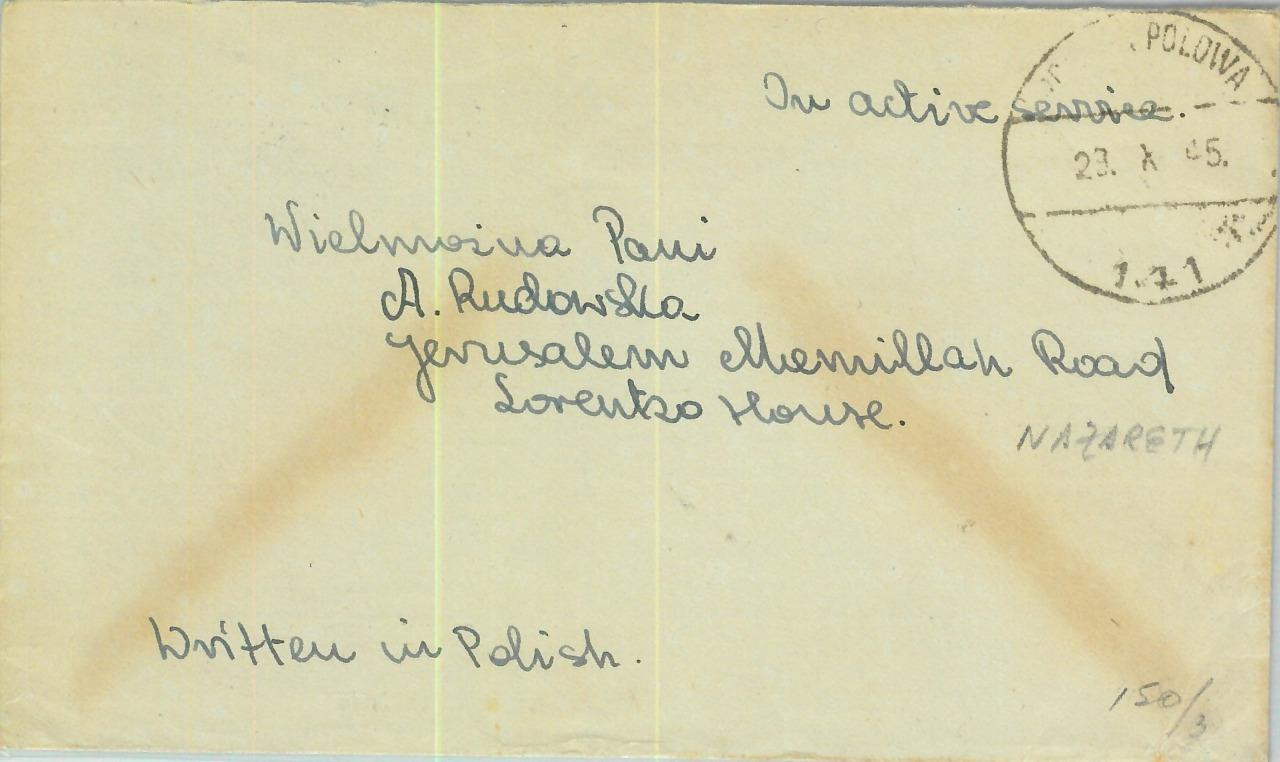 POLOWA
In active service.
23. X 45.
Wielmożna Pani
A. Rudowska
Jerusalem Memillah Road
Lorentzo House.
NAZARETH
Written in Polish.
150/3